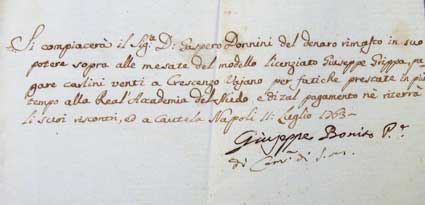 Si compiacerà il Sig.ʳ D. Gaspero Donnini del denaro rimasto in suo
potere sopra alle mesate del modello licenziato Giuseppe Grippa, pa
gare carlini venti a Crescenzo Usjano per fatiche prestate in più
tempo alla Real'Accademia del Nudo, e di tal pagamento nè riterrà
li suoi riscontri, ed a Cautela Napoli 11: Luglio 1763
Giuseppe Bonito P.ʳ
di Cam.ᵃ di S.M.